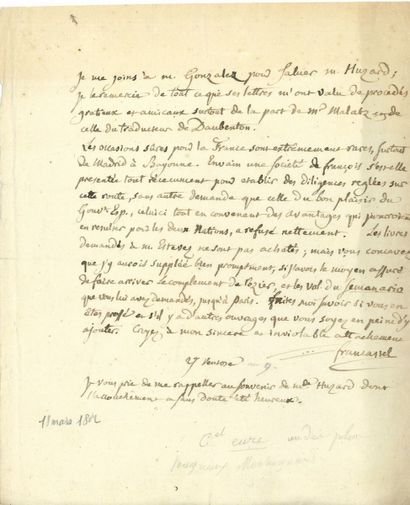 Je me joins à m. Gonzalez pour saluer m. Huzard;
je le remercie de tout ce que ses lettres m'ont valu de procédés
gratieux et amicaux surtout de la part de mr Malatz et de
celle du traducteur de Daubenton.
Les occasions sûres pour la France sont extrêmement rares, surtout
de Madrid à Bayonne. Envain une Société de françois s'est-elle
presentée tout récemment pour etablir des diligences reglées sur
cette route, sans autre demande que celle du bon plaisir du
Gouvt Esp., celui ci tout en convenant des avantages qui pourroient
en resulter pour les deux Nations, a refusé nettement. Les livres
demandés à m. Estevez ne sont pas achetés; mais vous concevez
que j'y aurois supplée bien promptement, si j'avois le moyen assuré
de faire arriver le complement de Rozier, et les vol. du semanario
que vous lui avez demandés, jusqu'à Paris. faites moi savoir si vous en
êtes pressé et s'il y a d'autres ouvrages que vous soyez en peine d'y
ajouter. Croyez à mon sincere et inviolable attachement
27 ventose an 9.
Je vous prie de me rappeller au souvenir de mde Huzard dont
l'accouchement a sans doute été heureux.